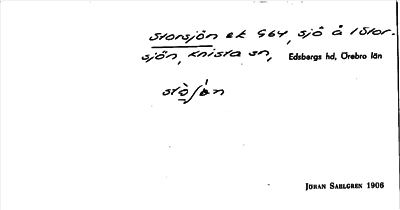 Storsjön ek 964, sjö å Stor-
sjön, Knista sn, Edsbergs hd, Örebro län
JÖRAN SAHLGREN 1906